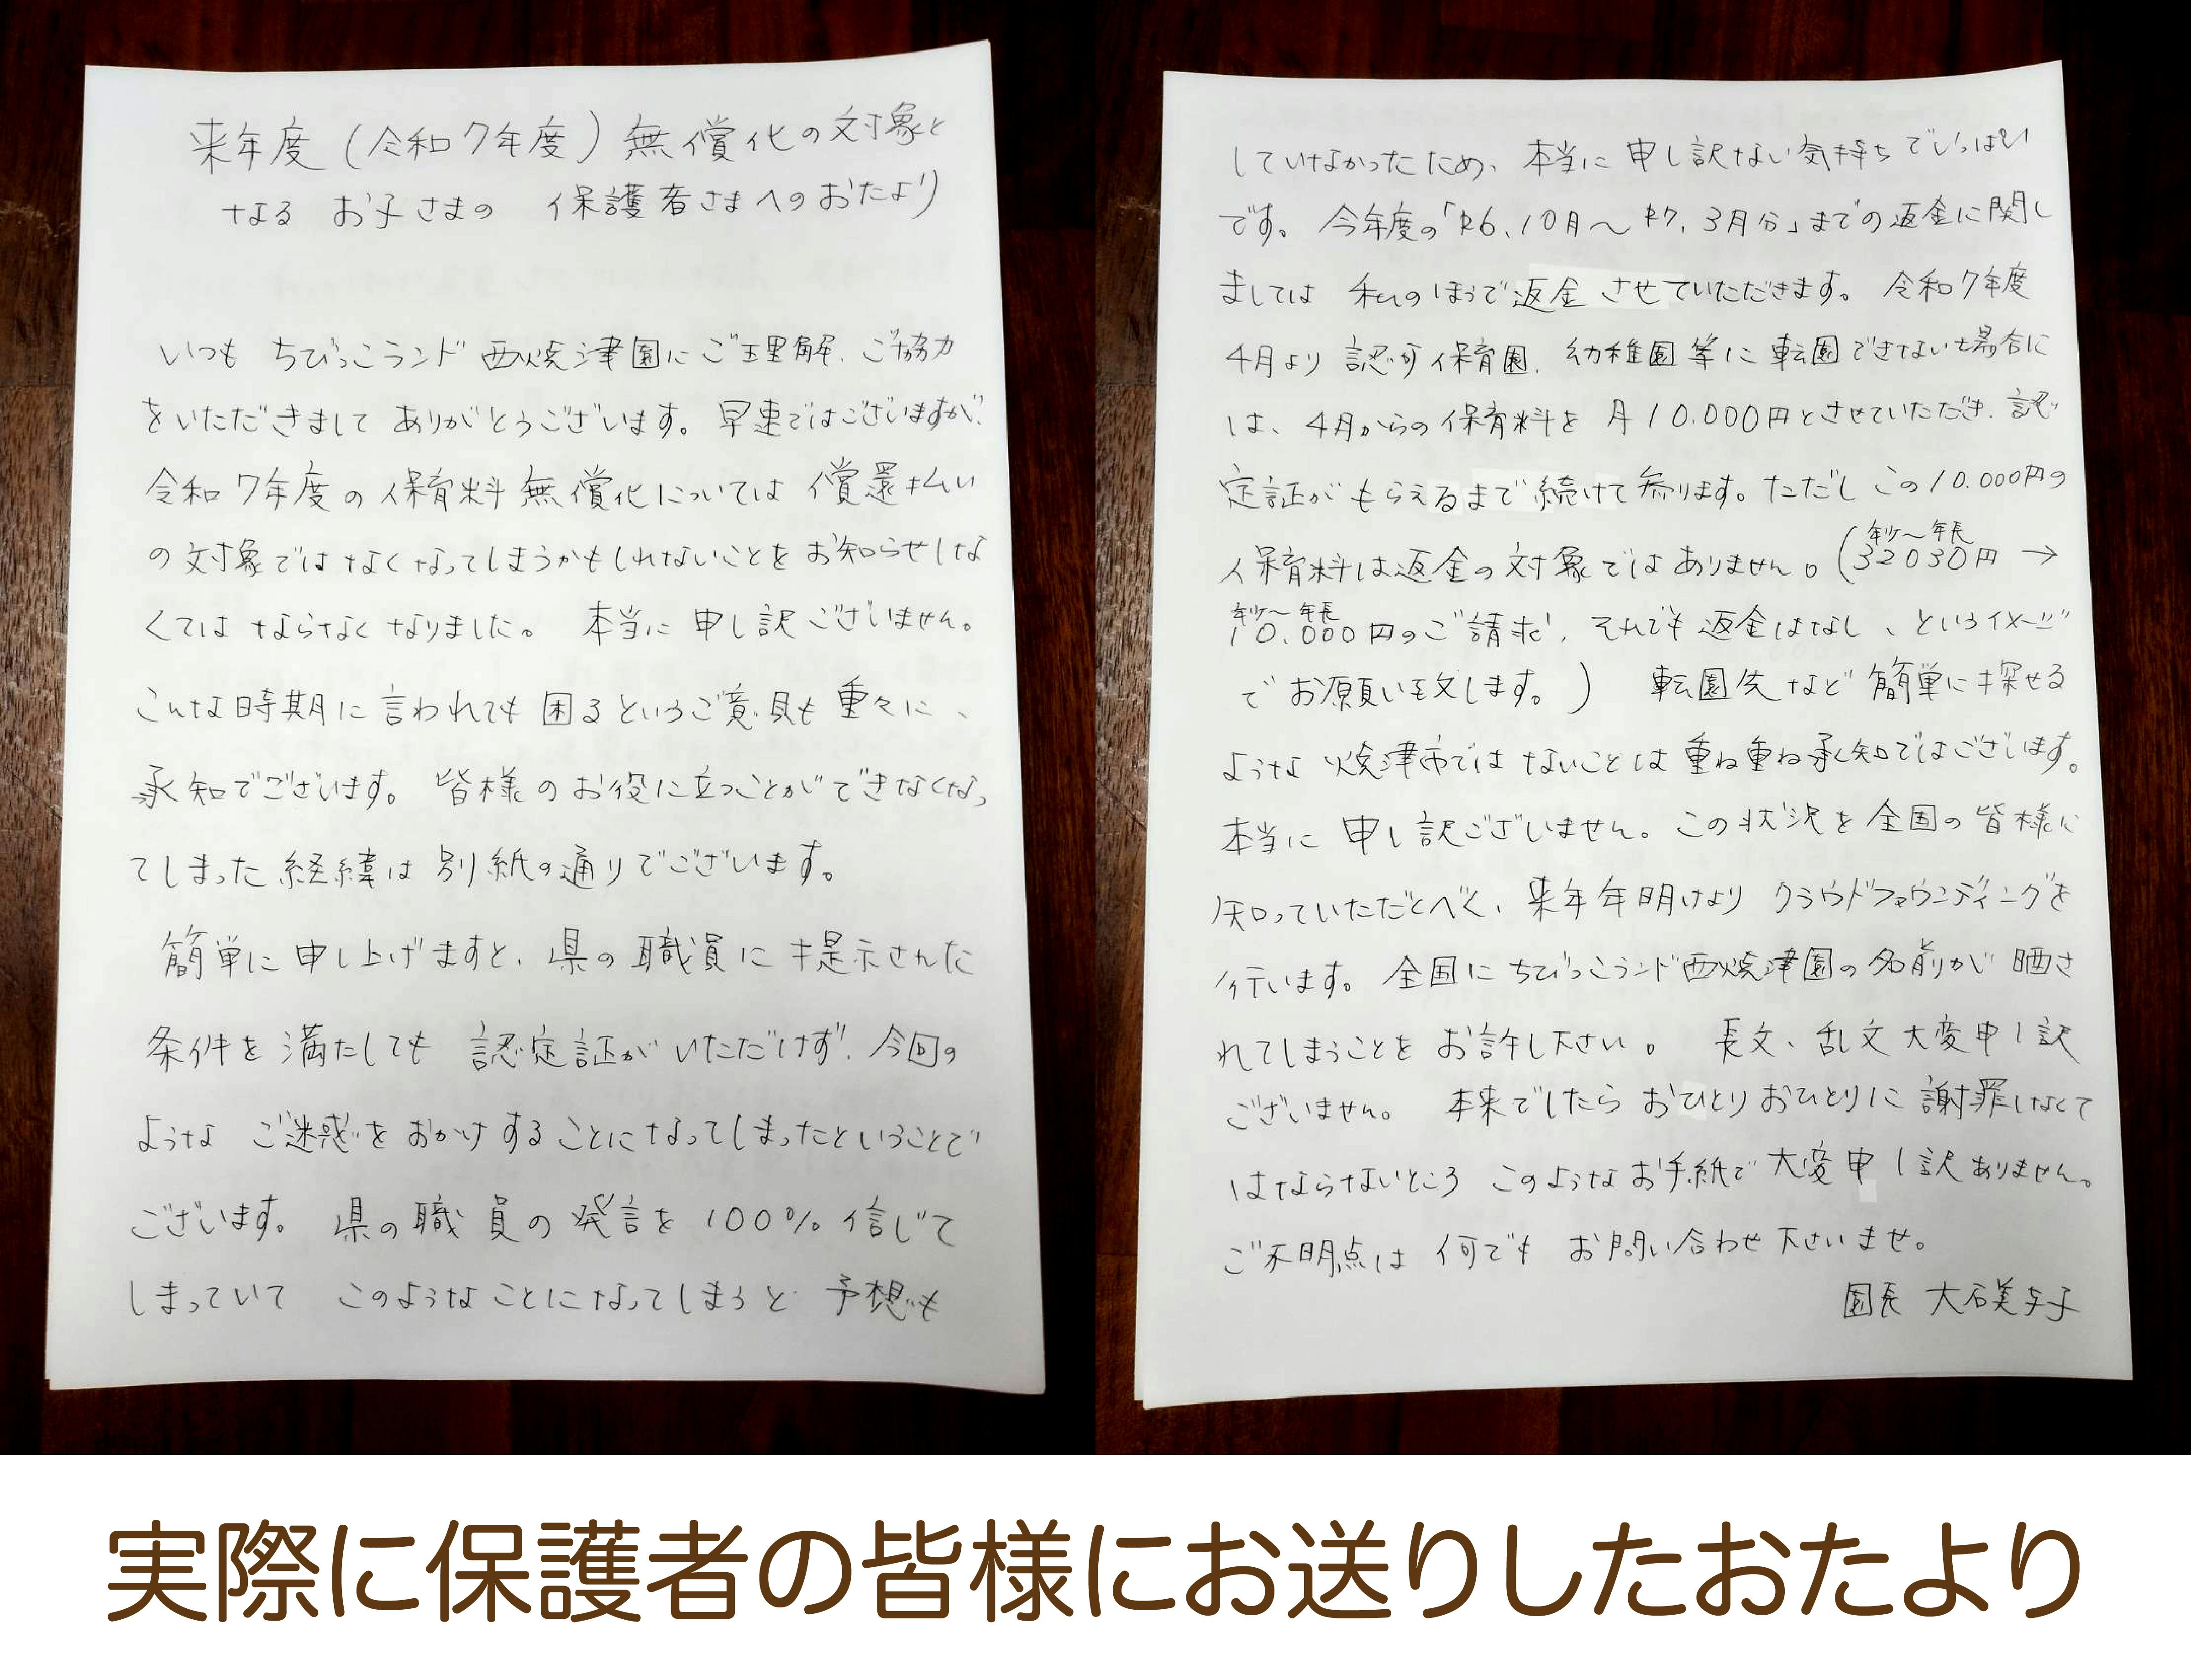 来年度(令和7年度)無償化の対象と
なる お子さまの 保護者さまへのおたより
いつも ちびっこランド 西焼津園にご理解、ご協力
をいただきまして ありがとうございます。早速ではございますが、
令和7年度の保育料無償化については 償還払い
の対象ではなくなってしまうかもしれないことをお知らせしな
くてはならなくなりました。 本当に申し訳ございません。
こんな時期に言われても困るというご意見も重々に、
承知でございます。皆様のお役に立つことができなくなっ
てしまった経緯は別紙の通りでございます。
簡単に申し上げますと、県の職員に提示された
条件を満たしても 認定証がいただけず、今回の
ような ご迷惑をおかけすることになってしまったということで
ございます。 県の職員の発言を100%信じて
しまっていて このようなことになってしまうと 予想も
していなかったため、本当に申し訳ない気持ちでいっぱい
です。 今年度の「R6.10月〜R7.3月分」までの返金に関し
ましては 私のほうで返金させていただきます。 令和7年度
4月より 認可保育園、幼稚園等に転園できない場合に
は、4月からの保育料を 月10.000円とさせていただき、認
定証がもらえるまで続けて参ります。ただし この10.000円の
保育料は返金の対象ではありません。(年少〜年長 32030円→
年少〜年長 10.000円のご請求、それでも返金はなし、というイメージ
でお願い致します。) 転園先など簡単に探せる
ような 焼津市ではないことは重ね重ね承知ではございます。
本当に申し訳ございません。この状況を全国の皆様に
知っていただくべく、来年年明けより クラウドファウンディングを
行います。 全国にちびっこランド西焼津園の名前が晒さ
れてしまうことをお許し下さい。 長文、乱文大変申し訳
ございません。 本来でしたら おひとりおひとりに謝罪しなくて
はならないところ このようなお手紙で大変申し訳ありません。
ご不明点は何でも お問い合わせ下さいませ。
園長 大石美
実際に保護者の皆様にお送りしたおたより